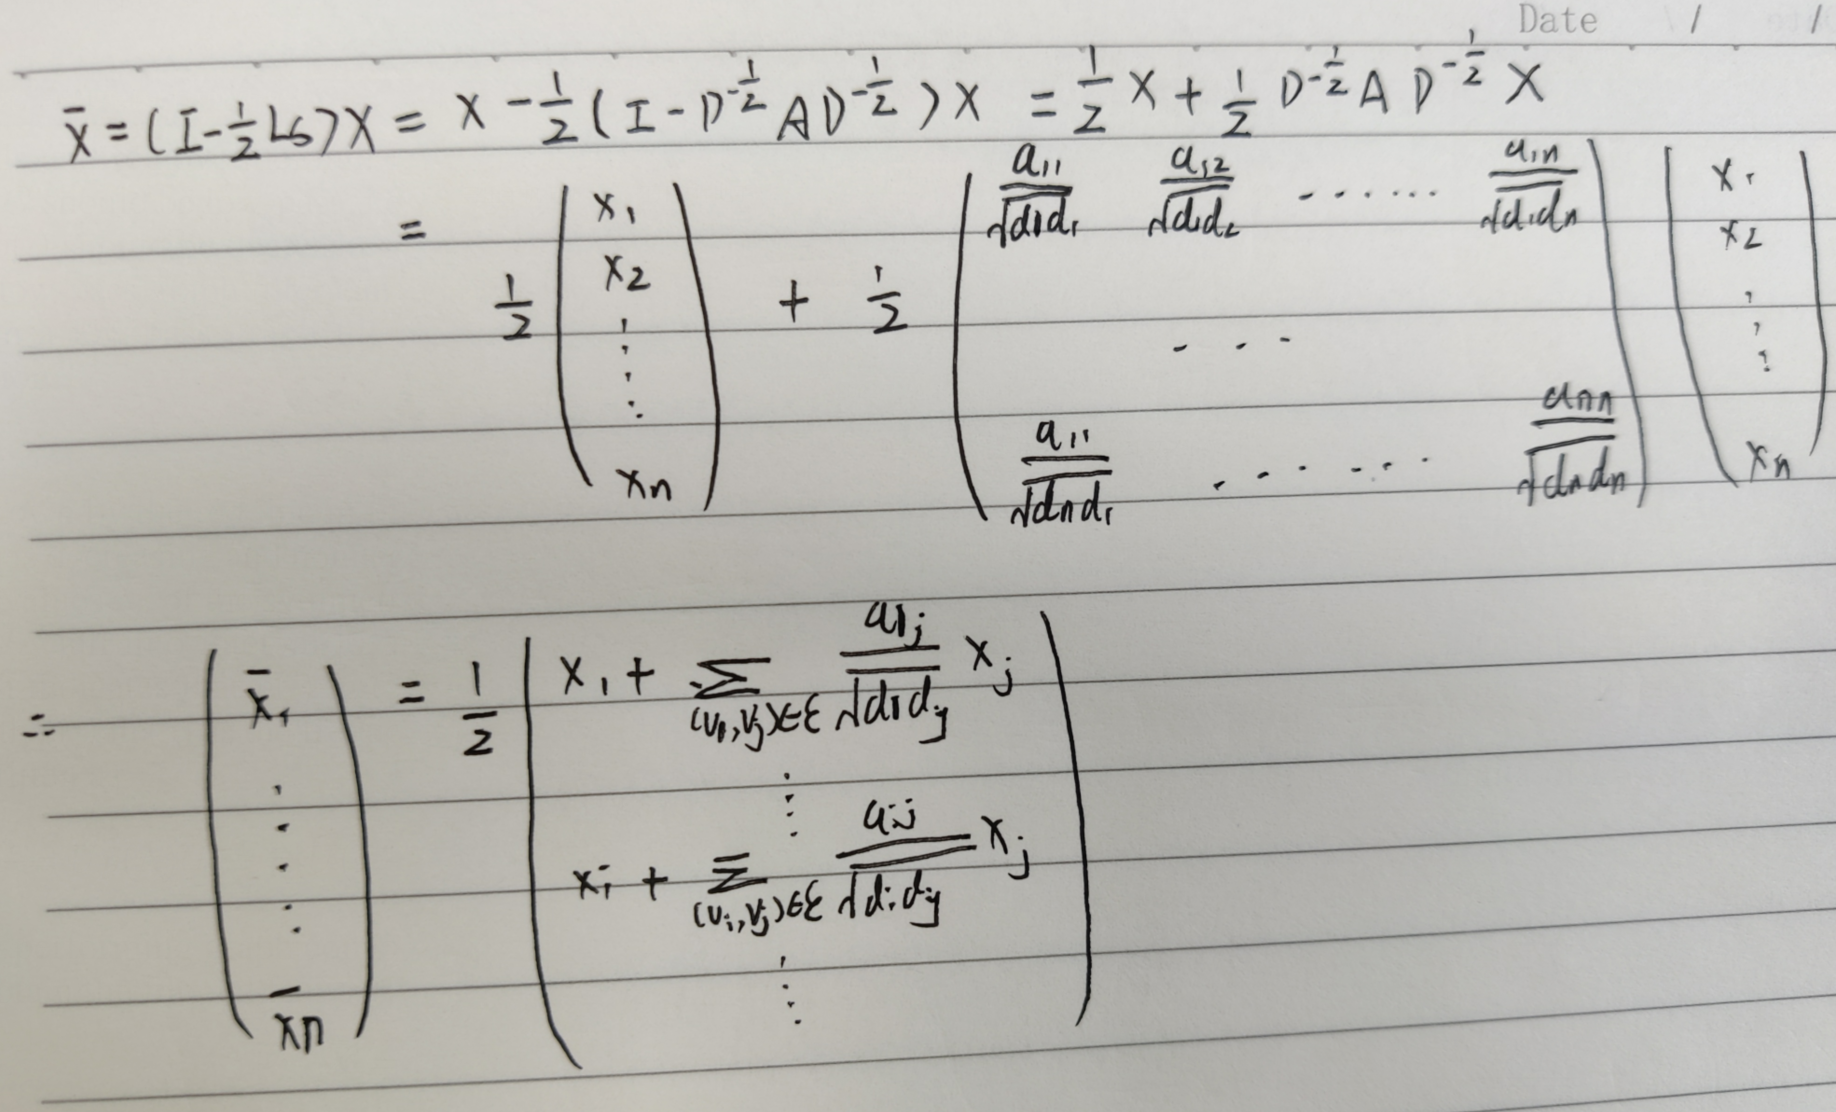 Date / /
x̄ = (I-½Ls)X = X - ½(I - D^{-½}AD^{-½})X = ½X + ½D^{-½}AD^{-½}X
= ½ (x₁ x₂ ⋮ xₙ) + ½ (a₁₁/√d₁d₁ a₁₂/√d₁d₂ ...... a₁ₙ/√d₁dₙ ... a₁₁/√dₙd₁ ...... aₙₙ/√dₙdₙ) (x₁ x₂ ⋮ xₙ)
∴ (x̄₁ ⋮ x̄n) = ½ (x₁ + Σ_{(v₁,vⱼ)∈ε} a₁ⱼ/√d₁dⱼ xⱼ ⋮ xᵢ + Σ_{(vᵢ,vⱼ)∈ε} aᵢⱼ/√dᵢdⱼ xⱼ ⋮)